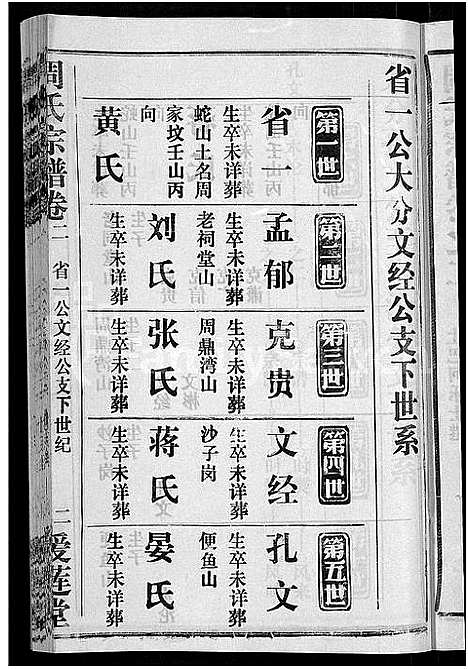 省一公大分文经公支下世系
第一世
省一
生卒未详葬
蛇山土名周
家坟壬山丙
向
黄氏
第二世
孟郁
生卒未详葬
老祠堂山
刘氏
生卒未详葬
第三世
克贵
生卒未详葬
周鼎湾山
张氏
生卒未详葬
第四世
文经
生卒未详葬
沙子岗
蒋氏
生卒未详葬
第五世
孔文
生卒未详葬
便鱼山
晏氏
生卒未详葬
周氏宗谱卷二 省一公文经公支下世纪 二 爱莲堂